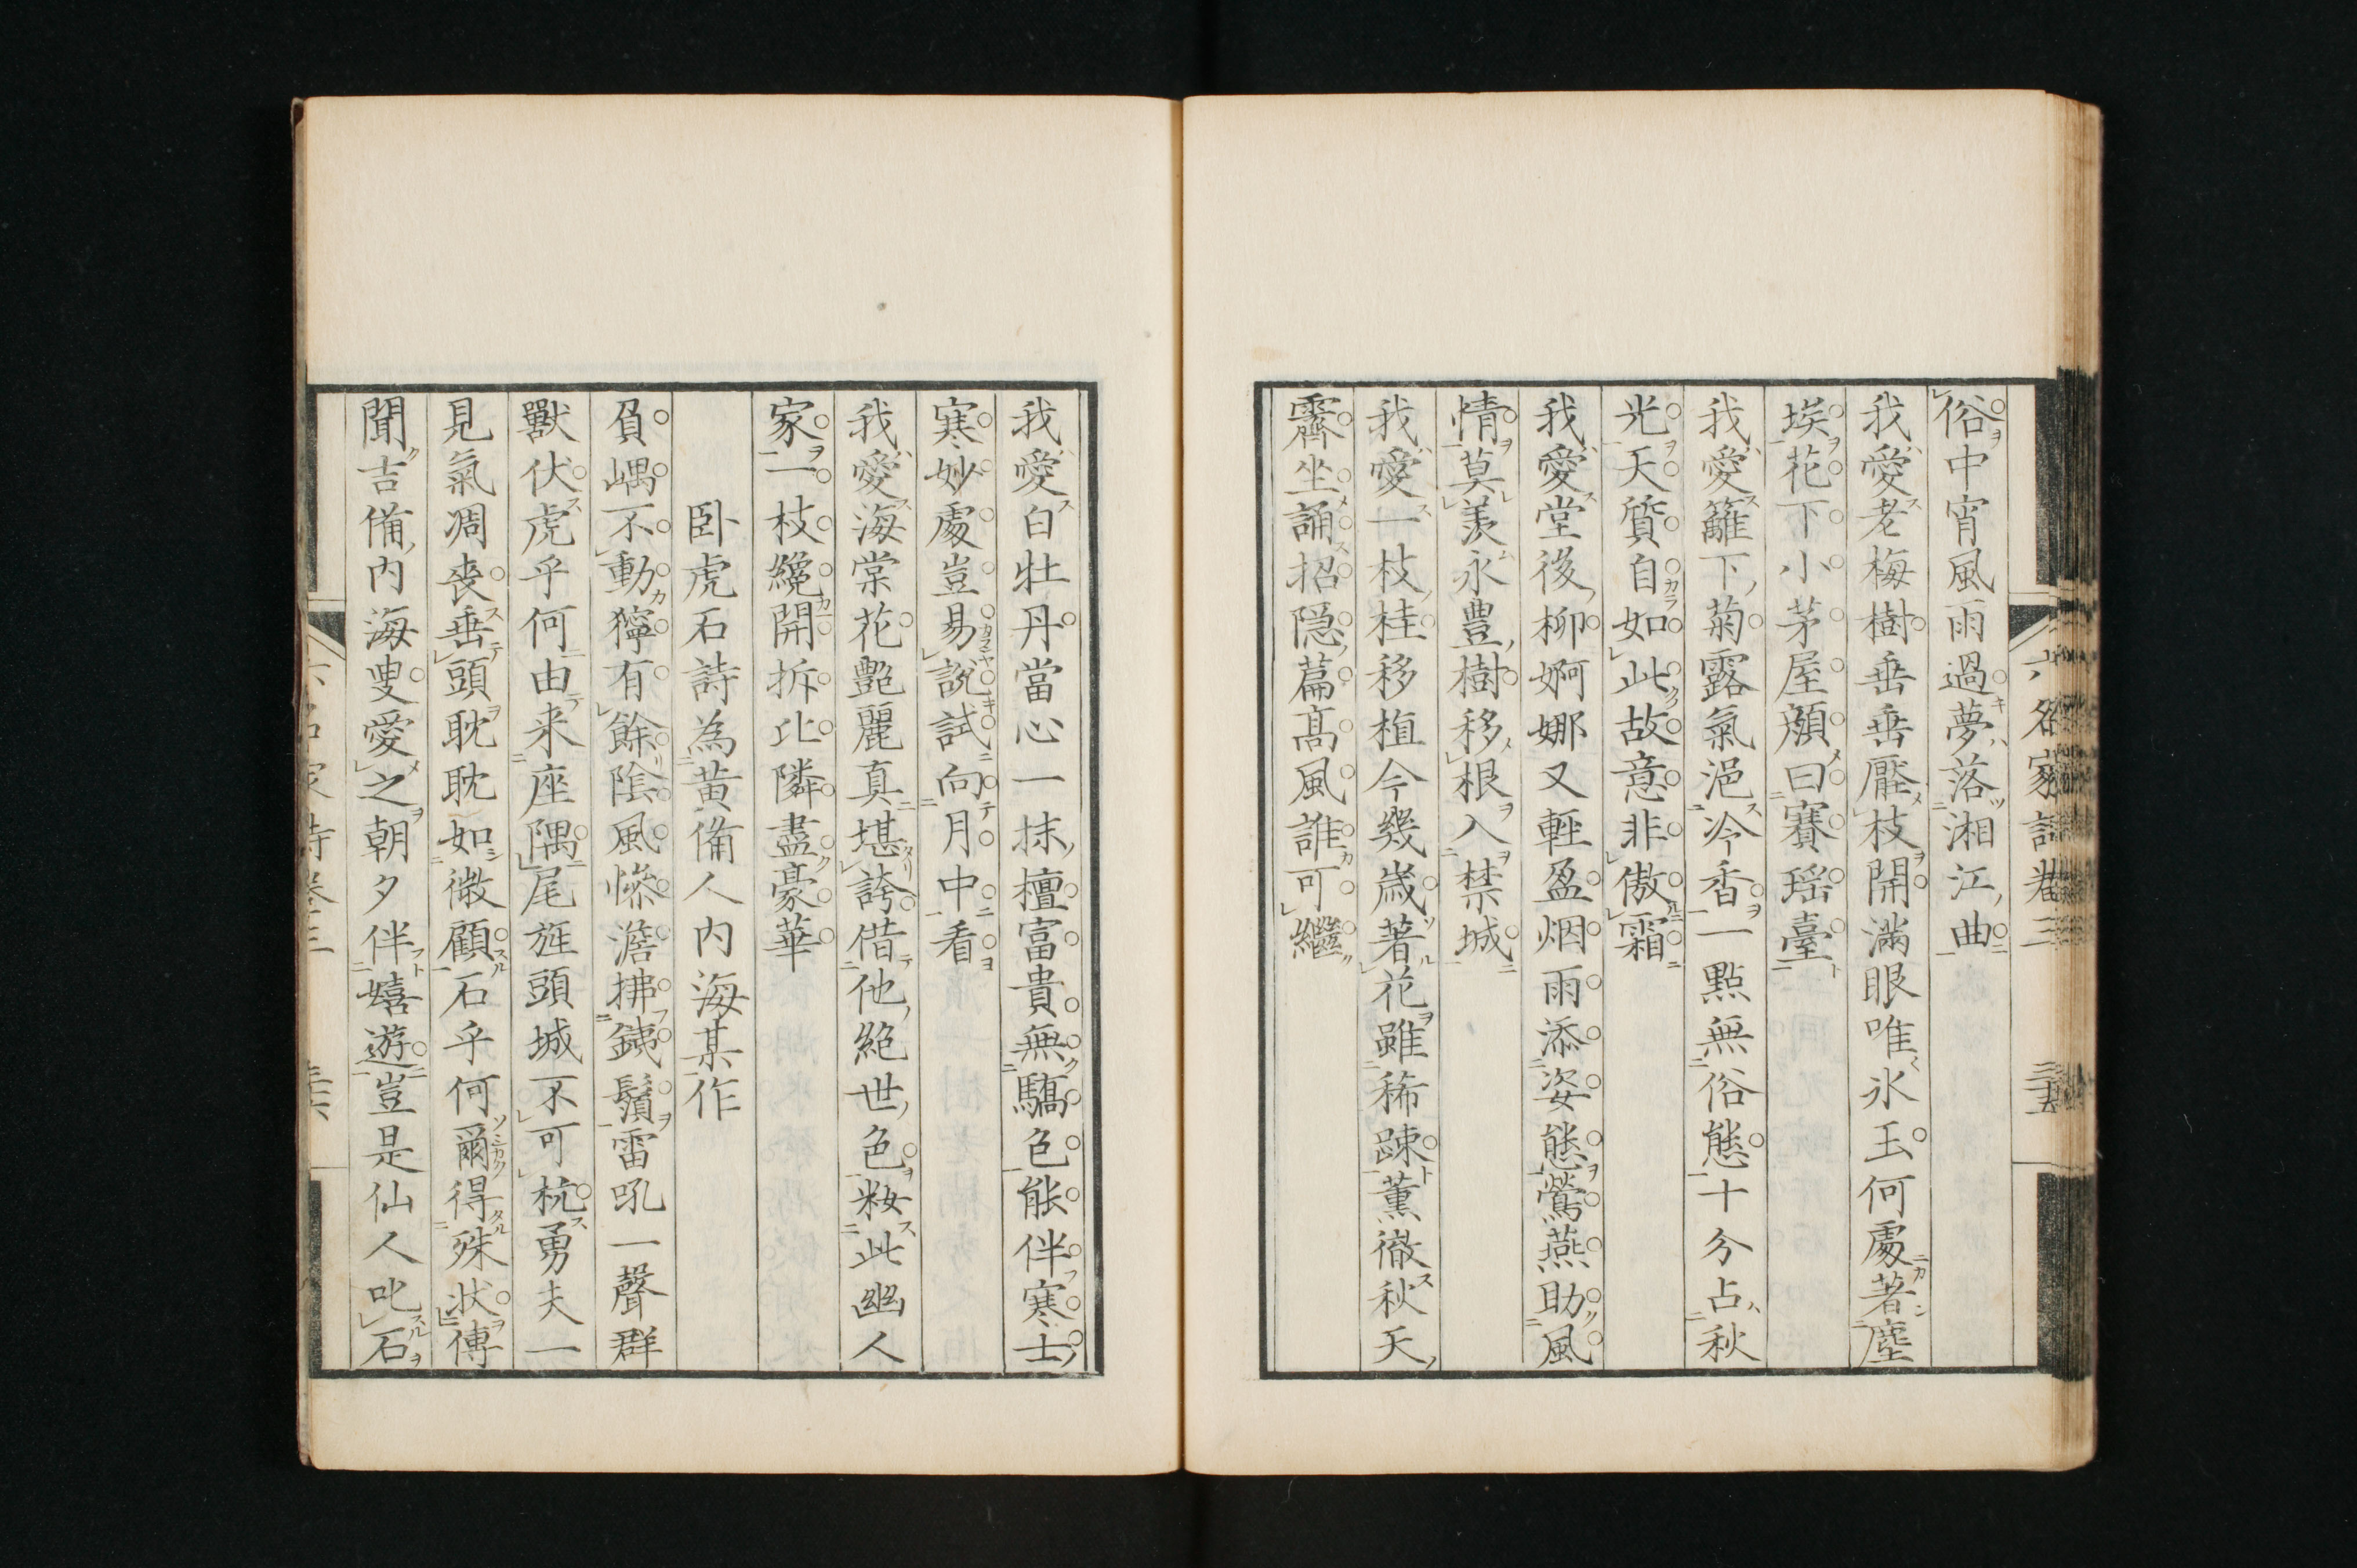 六名家詩巻三 三十五
俗中宵風雨過夢落湘江曲
我愛老梅樹垂垂壓枝開滿眼唯氷玉何處著塵
埃花下小茅屋顏曰賽瑶臺
我愛籬下菊露氣浥冷香一點無俗態十分占秋
光天質自如此故意非傲霜
我愛堂後柳婀娜又輕盈烟雨添姿態鶯燕助風
情莫羨永豊樹移根入禁城
我愛一枝桂移植今幾歳著花雖稀踈薰徹秋天
霽坐誦招隱篇高風誰可繼
我愛白牡丹當心一抹檀富貴無驕色能伴寒士
寒妙處豈易說試向月中看
我愛海棠花艶麗真堪誇借他絶世色粧此幽人
家一枝纔開拆北隣盡豪華
卧虎石詩為黄備人内海某作
負嵎不動獰有餘陰風慘澹拂銕鬚雷吼一聲群
獸伏虎乎何由来座隅尾旌頭城不可杭勇夫一
見氣凋喪垂頭耽耽如微顧石乎何爾得殊状傳
聞吉備内海叟愛之朝夕伴嬉遊豈是仙人叱石